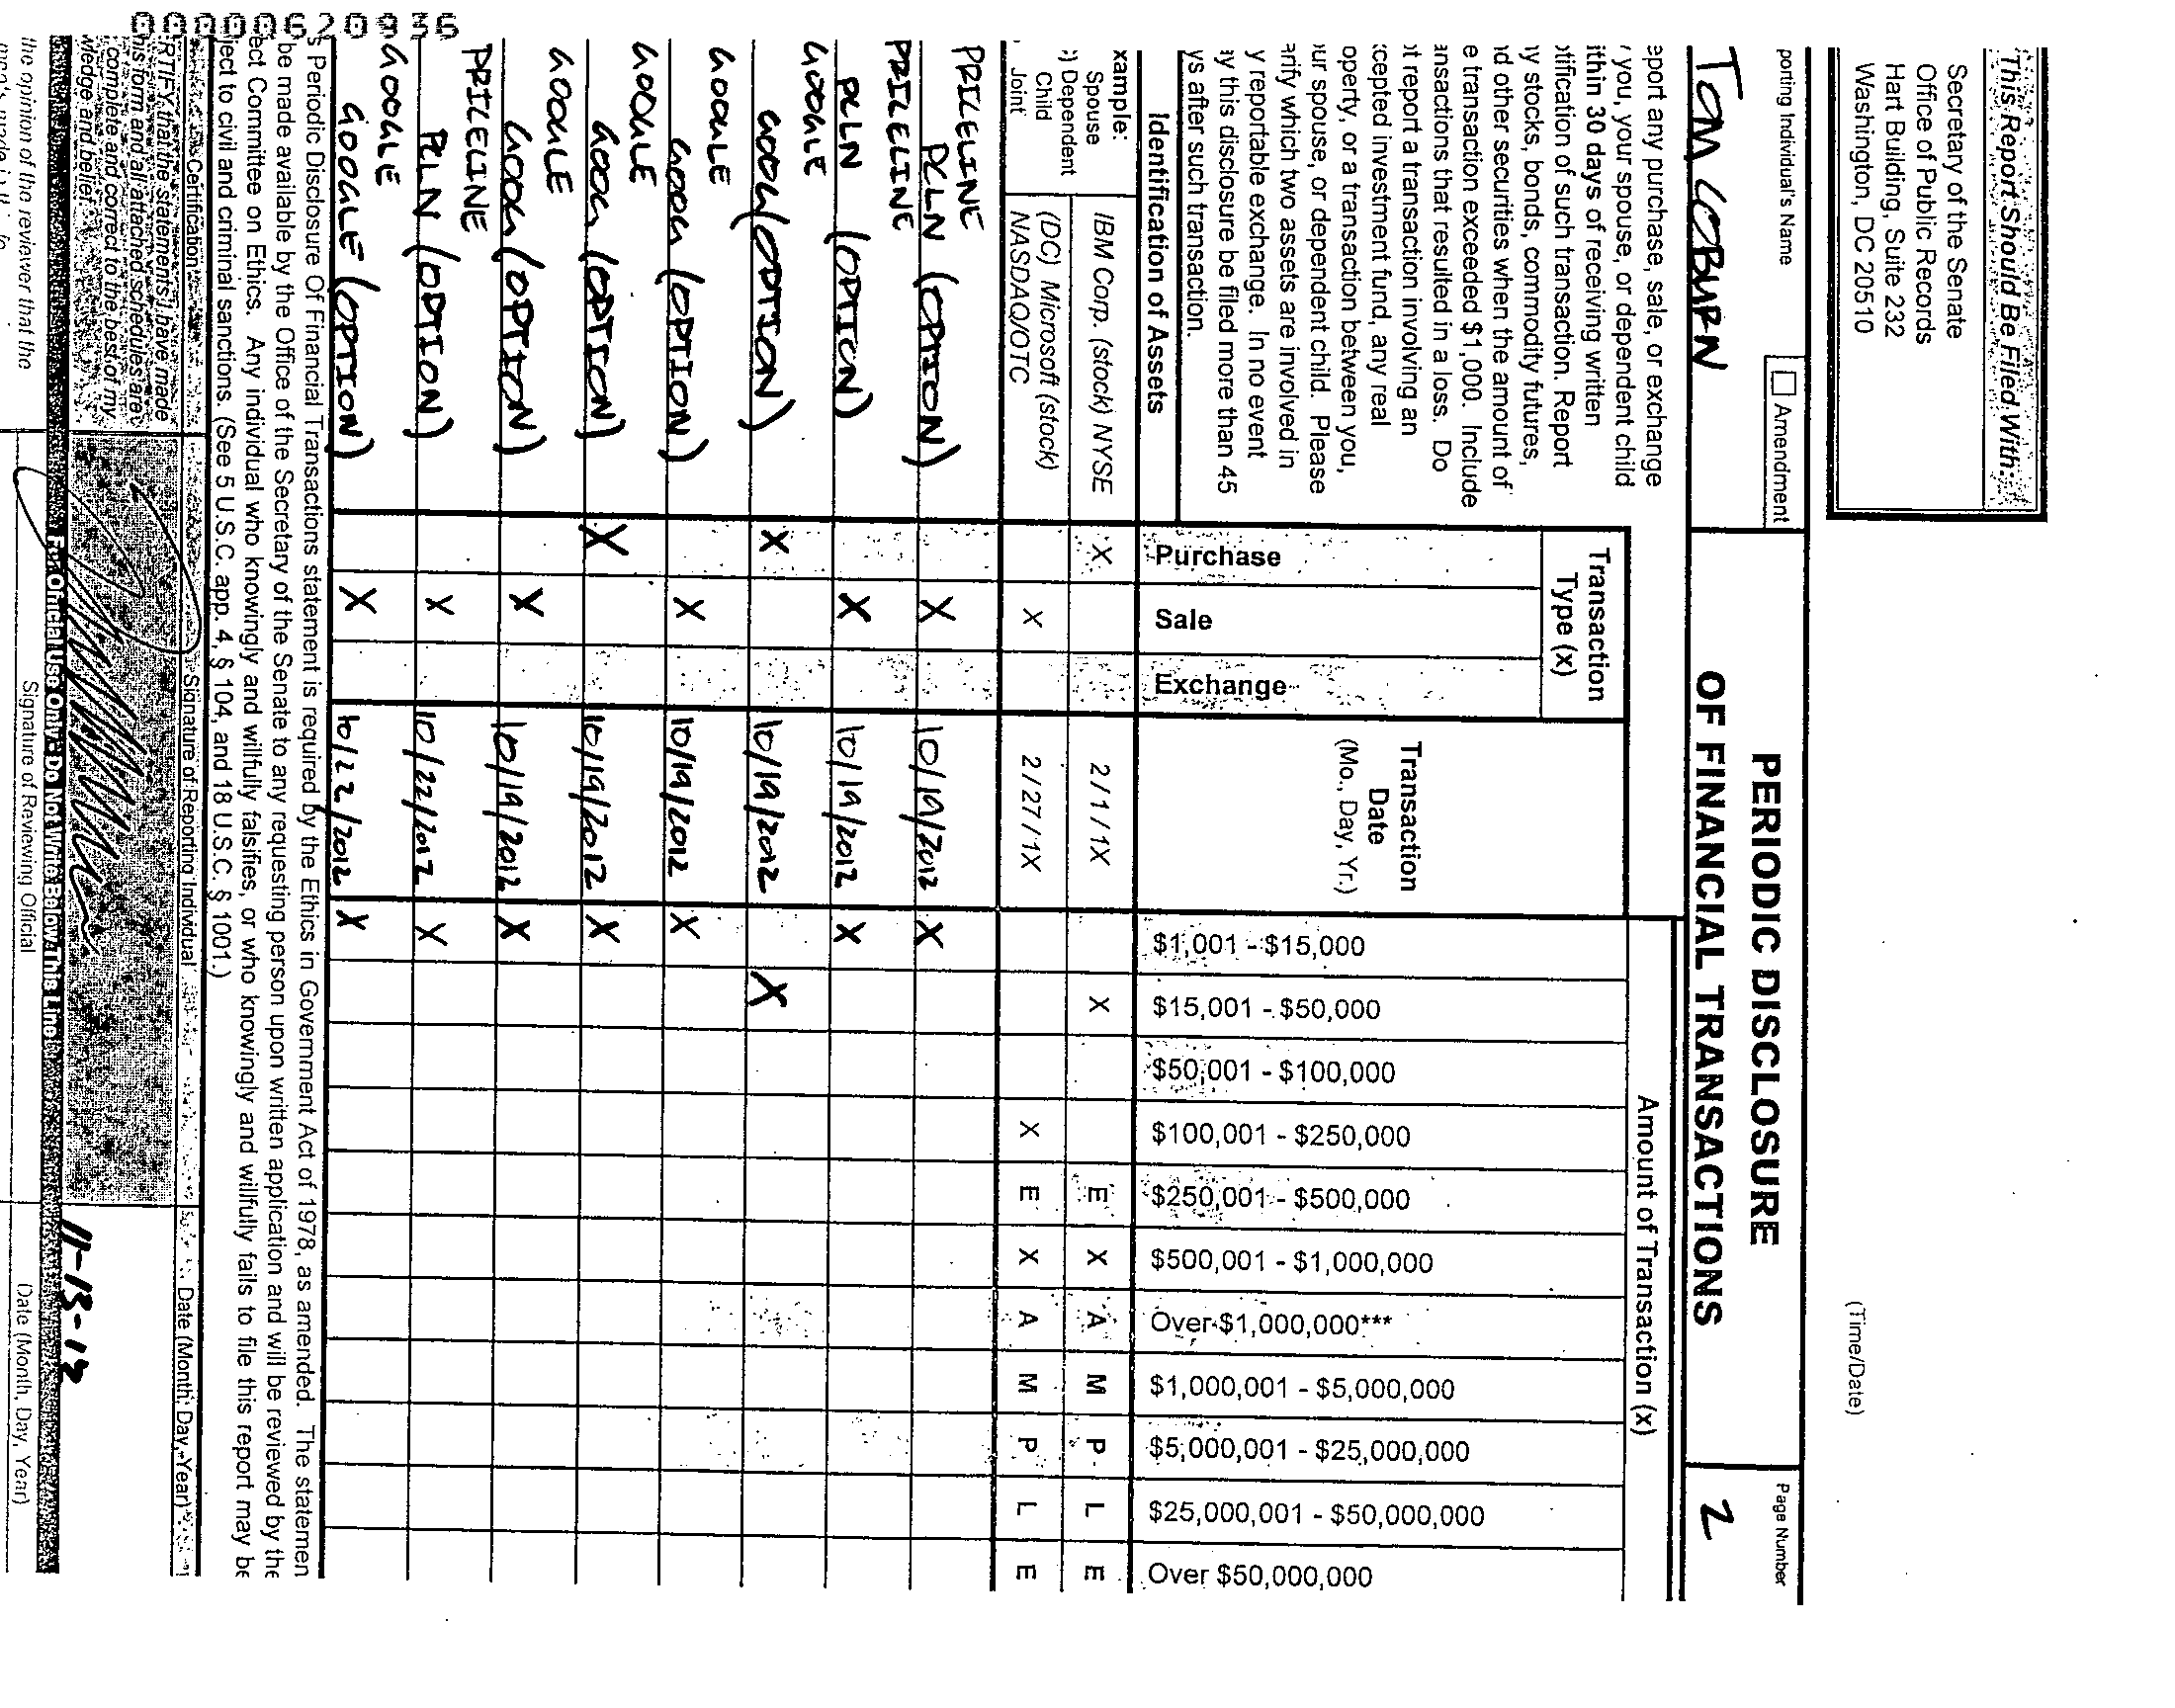 This Report Should Be Filed With:
Secretary of the Senate
Office of Public Records
Hart Building, Suite 232
Washington, DC 20510
(Time/Date)
porting Individual's Name
Amendment
TOM COBURN
PERIODIC DISCLOSURE
OF FINANCIAL TRANSACTIONS
Page Number
2
eport any purchase, sale, or exchange
you, your spouse, or dependent child
ithin 30 days of receiving written
otification of such transaction. Report
ny stocks, bonds, commodity futures,
nd other securities when the amount of
e transaction exceeded $1,000. Include
ansactions that resulted in a loss. Do
ot report a transaction involving an
xcepted investment fund, any real
operty, or a transaction between you,
our spouse, or dependent child. Please
arify which two assets are involved in
y reportable exchange. In no event
ay this disclosure be filed more than 45
ys after such transaction.
Identification of Assets
Transaction
Type (x)
Purchase
Sale
Exchange
Transaction
Date
(Mo., Day, Yr.)
Amount of Transaction (x)
$1,001 - $15,000
$15,001 - $50,000
$50,001 - $100,000
$100,001 - $250,000
$250,001 - $500,000
$500,001 - $1,000,000
Over $1,000,000***
$1,000,001 - $5,000,000
$5,000,001 - $25,000,000
$25,000,001 - $50,000,000
Over $50,000,000
xample:
Spouse
) Dependent
Child
Joint
IBM Corp. (stock) NYSE X 2/1/1X X E X A M P L E
(DC) Microsoft (stock)
NASDAQ/OTC X 2/27/1X X E X A M P L E
PRICELINE
PCLN (OPTION) X 10/19/2012 X
PRICELINE
PCLN (OPTION) X 10/19/2012 X
GOOGLE
GOOG (OPTION) X 10/19/2012 X
GOOGLE
GOOG (OPTION) X 10/19/2012 X
GOOGLE
GOOG (OPTION) X 10/19/2012 X
GOOGLE
GOOG (OPTION) X 10/19/2012 X
PRICELINE
PCLN (OPTION) X 10/22/2012 X
GOOGLE
GOOGLE (OPTION) X 10/22/2012 X
s Periodic Disclosure Of Financial Transactions statement is required by the Ethics in Government Act of 1978, as amended. The statemen
be made available by the Office of the Secretary of the Senate to any requesting person upon written application and will be reviewed by the
ect Committee on Ethics. Any individual who knowingly and willfully falsifies, or who knowingly and willfully fails to file this report may be
ject to civil and criminal sanctions. (See 5 U.S.C. app. 4, § 104, and 18 U.S.C. § 1001.)
Certification
Signature of Reporting Individual
Date (Month, Day, Year)
RTIFY that the statements I have made
his form and all attached schedules are
complete and correct to the best of my
wledge and belief.
11-13-12
For Official Use Only - Do Not Write Below This Line
the opinion of the reviewer that the
Signature of Reviewing Official
Date (Month, Day, Year)
00000620936